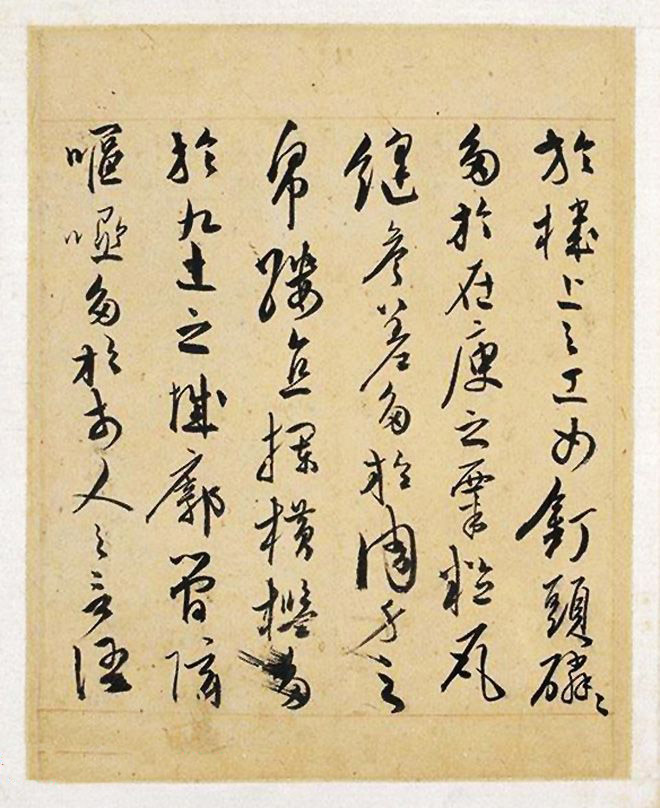 於機上之工女釘頭磷〻
多於在庾之粟粒瓦
縫參差多於周身之
帛縷直欄橫檻多
於九土之城郭管弦
嘔啞多於市人之言語